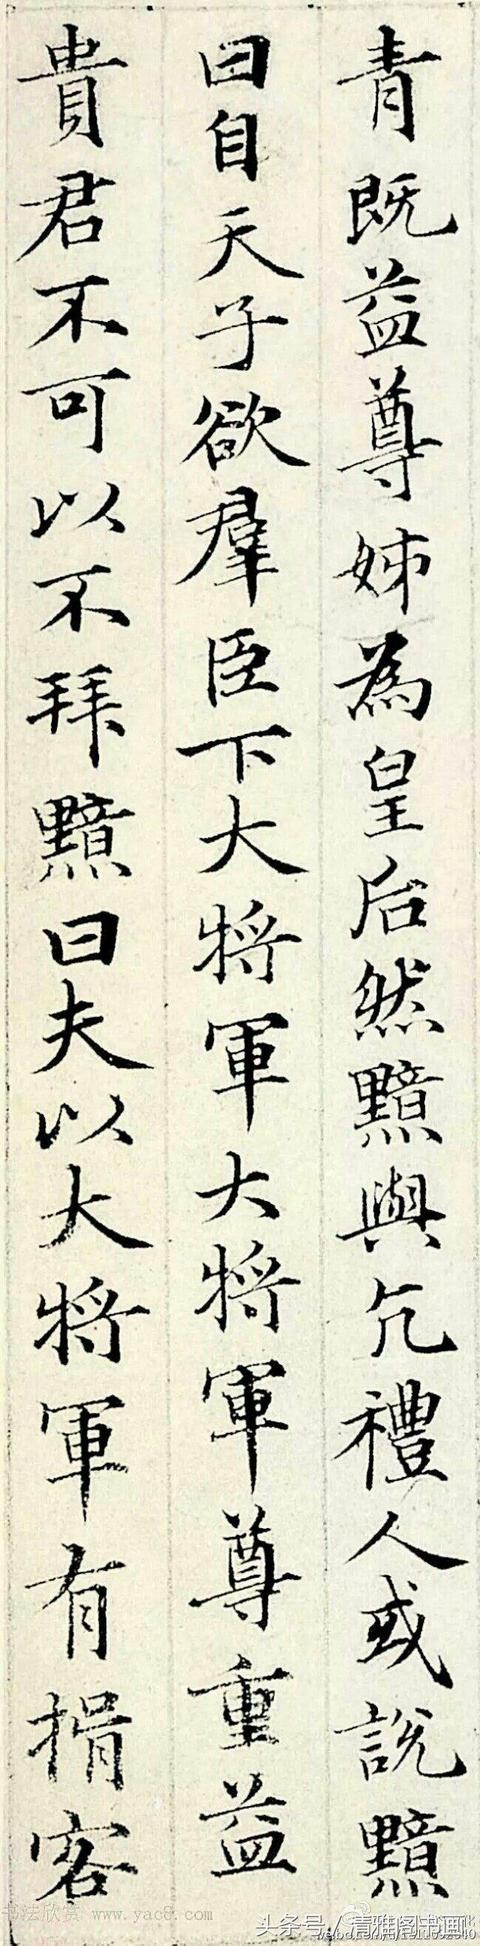 青既益尊姊為皇后然黯與亢禮人或說黯
曰自天子欲羣臣下大将軍大将軍尊重益
貴君不可以不拜黯曰夫以大将軍有揖客
书法欣赏 www.yac8.com
头条号/清雅阁书画